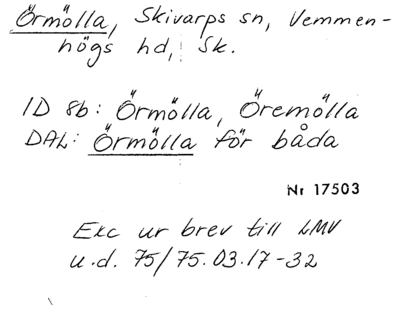 Örmölla, Skivarps sn, Vemmen-
högs hd, Sk.
ID 8b: Örmölla, Öremölla
DAL: Örmölla för båda
Nr 17503
Exc ur brev till LMV
u.d. 75/75.03.17-32